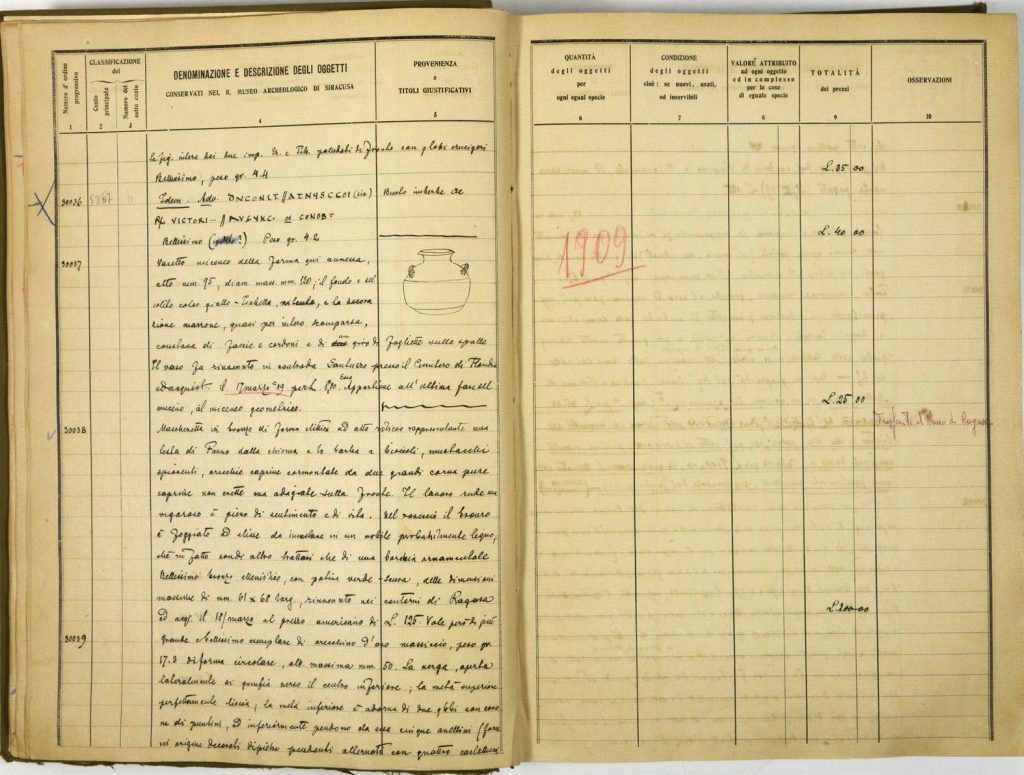 Numero d'ordine
progressivo
CLASSIFICAZIONE
dei
Conto
principale
Numero del
sotto conto
DENOMINAZIONE E DESCRIZIONE DEGLI OGGETTI
CONSERVATI NEL R. MUSEO ARCHEOLOGICO DI SIRACUSA
PROVENIENZA
e
TITOLI GIUSTIFICATIVI
1 2 3 4 5
Le fig. intere dei due imp. di fronte con globi crucigeri
Bellissimo, peso gr. 4.4
30036 6 Idem. Ado. (sic) Busto imberbe
R/ VICTORI... // CONOB
Bellissimo Peso gr. 4.2
30037 Vasetto miceneo della forma qui annessa,
alto mm. 95, diam. mass. mm. 120; il fondo e nel
solito color giallo-Isabella, e la decora
zione marrone, quasi per intero scomparsa,
constava di fascie e cordoni e di giro di fogliette sulle spalle
Il vaso fu rinvenuto in contrada presso il Cimitero di Floridia
ed acquist. il 17 marzo 09 per L. Appartiene all'ultima fase del
miceneo, al miceneo geometrico.
30038 Mascheretta in bronzo di forma ellittica ad alto rilievo rappresentante una
testa di Fauno dalla chioma e la barba a bioccoli, mustacchi
spioventi, orecchie caprine sormontate da due grandi corna pure
caprine non erette ma adagiate sulla fronte. Il lavoro rude ma
vigoroso è pieno di sentimento e di vita. Nel rovescio il bronzo
è foggiato ad elise da innestare in un mobile probabilmente legno,
chè in fatto non di altro trattasi che di una borchia ornamentale
Bellissimo bronzo ellenistico, con patina verde-scura, delle dimensioni
massime di mm. 61 x 68 larg, rinvenuto nei contorni di Ragusa
ed acq. il 18/marzo al prezzo americano di L. 125. Vale però di più
30039 Grande e bellissimo esemplare di orecchino d'oro massiccio, peso gr.
17.3 di forma circolare, alt. massima mm. 50. La verga, aperta
lateralmente si gonfia verso il centro inferiore; la metà superiore
perfettamente liscia, la metà inferiore è adorna di due globi con coro
ne di puntini, ed inferiormente pendono da essa cinque anellini (forse
in origine decorati di pietre pendenti) alternati con quattro
QUANTITÀ
degli oggetti
per
ogni egual specie
CONDIZIONE
degli oggetti
cioè: se nuovi, usati,
od inservibili
VALORE ATTRIBUITO
ad ogni oggetto
ed in complesso
per le cose
di eguale specie
TOTALITÀ
dei prezzi
OSSERVAZIONI
6 7 8 9 10
L. 35 00
L. 40 00
1909
L. 25 00
Trasferito al Museo di Ragusa
L. 200 00